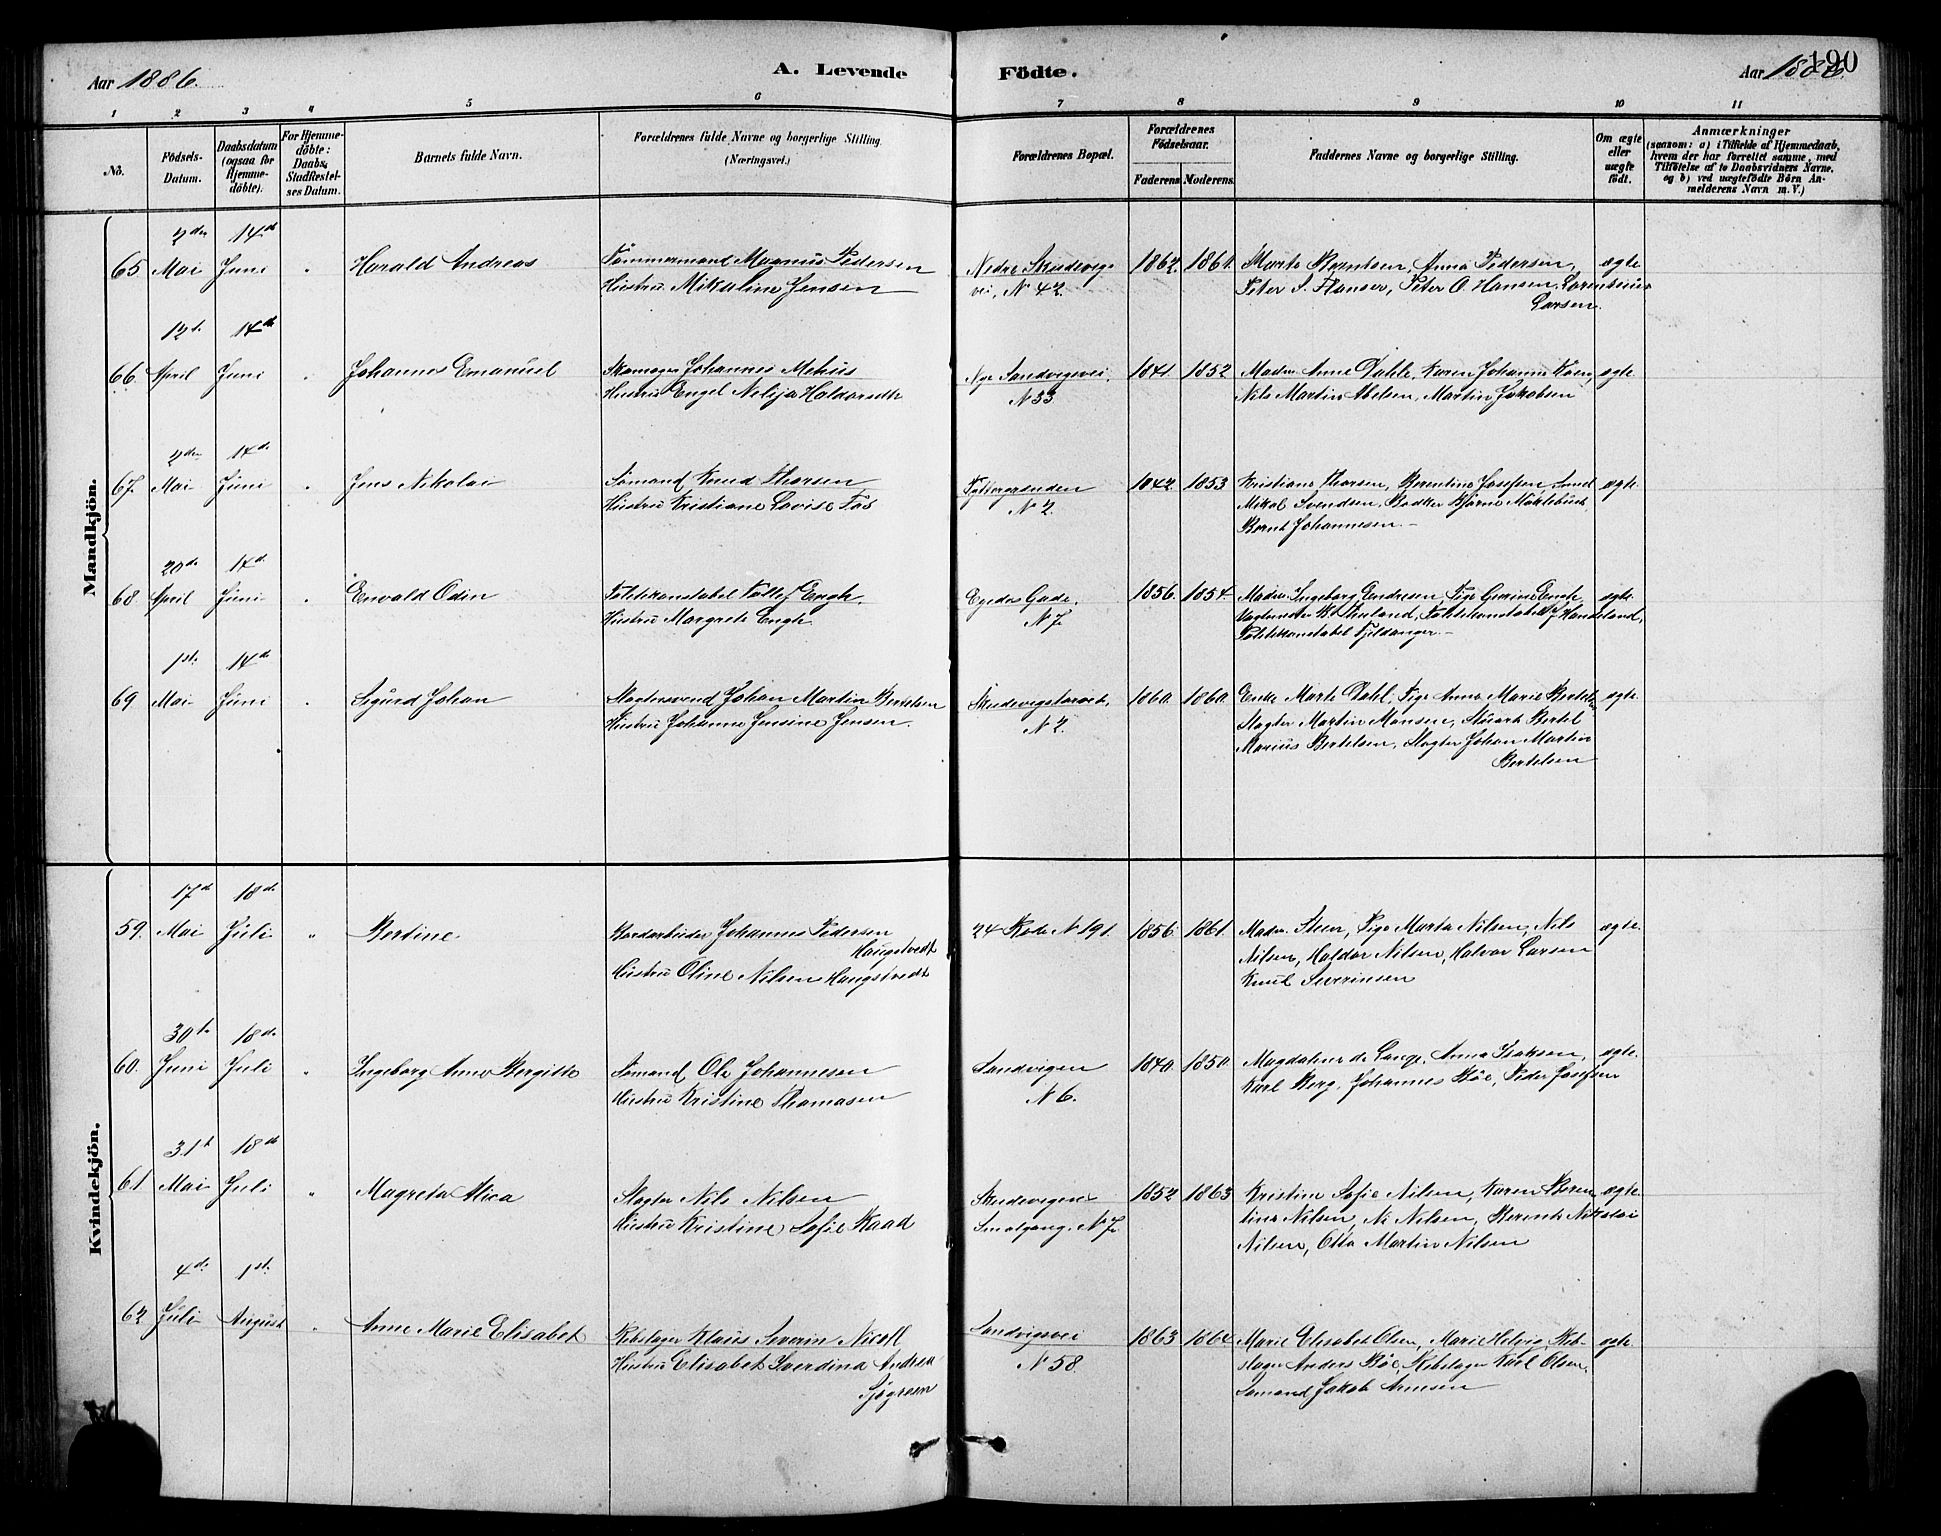 Aar 1886.
A. Levende
Födte.
Aar 1886.
190
1 2 3 4 5 6
7 8 9 10 11
No.
Födsels-
Datum.
Daabsdatum
(ogsaa for
Hjemme-
döbte).
For Hjemme-
döbte:
Daabs,
Stadfestel-
ses Datum.
Barnets fulde Navn.
Forældrenes fulde Navne og borgerlige Stilling.
(Næringsvei.)
Forældrenes Bopæl.
Forældrenes
Födselsaar.
Faderens Moderens.
Faddernes Navne og borgerlige Stilling.
Om ægte
eller
uægte
födt.
Anmærkninger
(saasom: a) i Tilfælde af Hjemmedaab,
hvem der har forrettet samme, med
Tilföielse af to Daabsvidners Navne,
og b) ved uægtefödte Börn An-
melderens Navn m. V.)
Mandkjön.
2den 14de
65 Mai Juni " Harald Andreas
Tömmermand Magnus Pedersen
Hustru Mikaline Jensen
Nedre Skudevigs
vei, N 42.
1862. 1861.
Marte Berntsen, Anna Pedersen,
Peter S. Hansen, Peter O. Hansen, Larentsius
Larsen.
ægte
12t. 14de
66. April Juni " Johannes Emanuel
Skomager Johannes Mehus
Hustru Engel Nelija Haldorsdtr
Nye Sandvigsvei,
N 33.
1841 1852
Madm Anne Dahle, Karen Johanne
Nils Martin Abelsen, Martin Jakobsen
ægte.
2den 14de
67. Mai Juni " Jens Nikolai
Sömand Knud Thorsen
Hustru Kristiane Lovise Fos
N 2.
1842. 1853
Kristiane Thorsen, Berentine Josefsen Smed
Mikal Svendsen, Bødker Bjarne Möklebust,
Bernt Johannesen. –
ægte.
20de 14de
68. April Juni " Envald Odin
Politikonstabel Engh.
Hustru Margrete Engh.
Egedes Gade,
N 7.
1856. 1854.
Madm Ingeborg Endresen, Pige Gurine Engh,
Politikonstabel Haugland,
Politikonstabel Fjeldanger. –
ægte.
1st. 14de
69 Mai Juni " Sigurd Johan
Slagtersvend Johan Martin Bertelsen
Hustru Johanne Jensine Jensen.
Skudevigstorvet,
N 2.
1860. 1860.
Enke Marte Dahl, Pige Anna Marie Bertels
Slagter Martin Monsen, Bertel
Marius Bertelsen, Slagter Johan Martin
Bertelsen
ægte.
Kvindekjön.
17de 18de
59. Mai Juli " Bertine
Bordarbeider Johannes Pedersen
Haugstvedt
Hustru Oline Nilsen Haugstvedt
24 Rode N 191.
1856. 1861.
Madm. Steen, Pige Marta Nilsen, Nils
Nilsen, Haldor Nilsen, Halvor Larsen
Knud Severinsen
ægte.
30te 18de
60. Juni Juli " Ingeborg Anne Bergitte
Sömand Ole Johannesen
Hustru Kristine Thomasen
Sandvigen
N 6.
1840. 1850.
Magdalene de Lange, Anna Isaksen,
Karl Berg, Johannes Böe, Peder Josefsen
ægte.
31t 18de
61 Mai Juli " Magreta Alica
Slagter Nils Nilsen
Hustru Kristine Sofie Kaad
Skudevigens
Smalgang. N 7.
1852 1863
Kristine Sofie Nilsen, Karen Beren
tine Nilsen, Ni Nilsen, Berent Nikolai
Nilsen, Otto Martin Nilsen
ægte.
4de 1st.
62 Juli August " Anne Marie Elisabet
Rebslager Klaus Severin Nicoll
Hustru Elisabet Sverdina Andrea
Sjögreen
Sandvigsvei
N 58.
1863 1864.
Marie Elisabet Olsen, Marie Helvig, Reb-
slager Anders Böe, Rebslager Karl Olsen,
Sömand Jakob Arnesen
ægte.